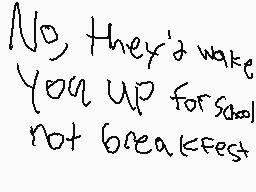 No, they'd wake
you up for school
not breakfest